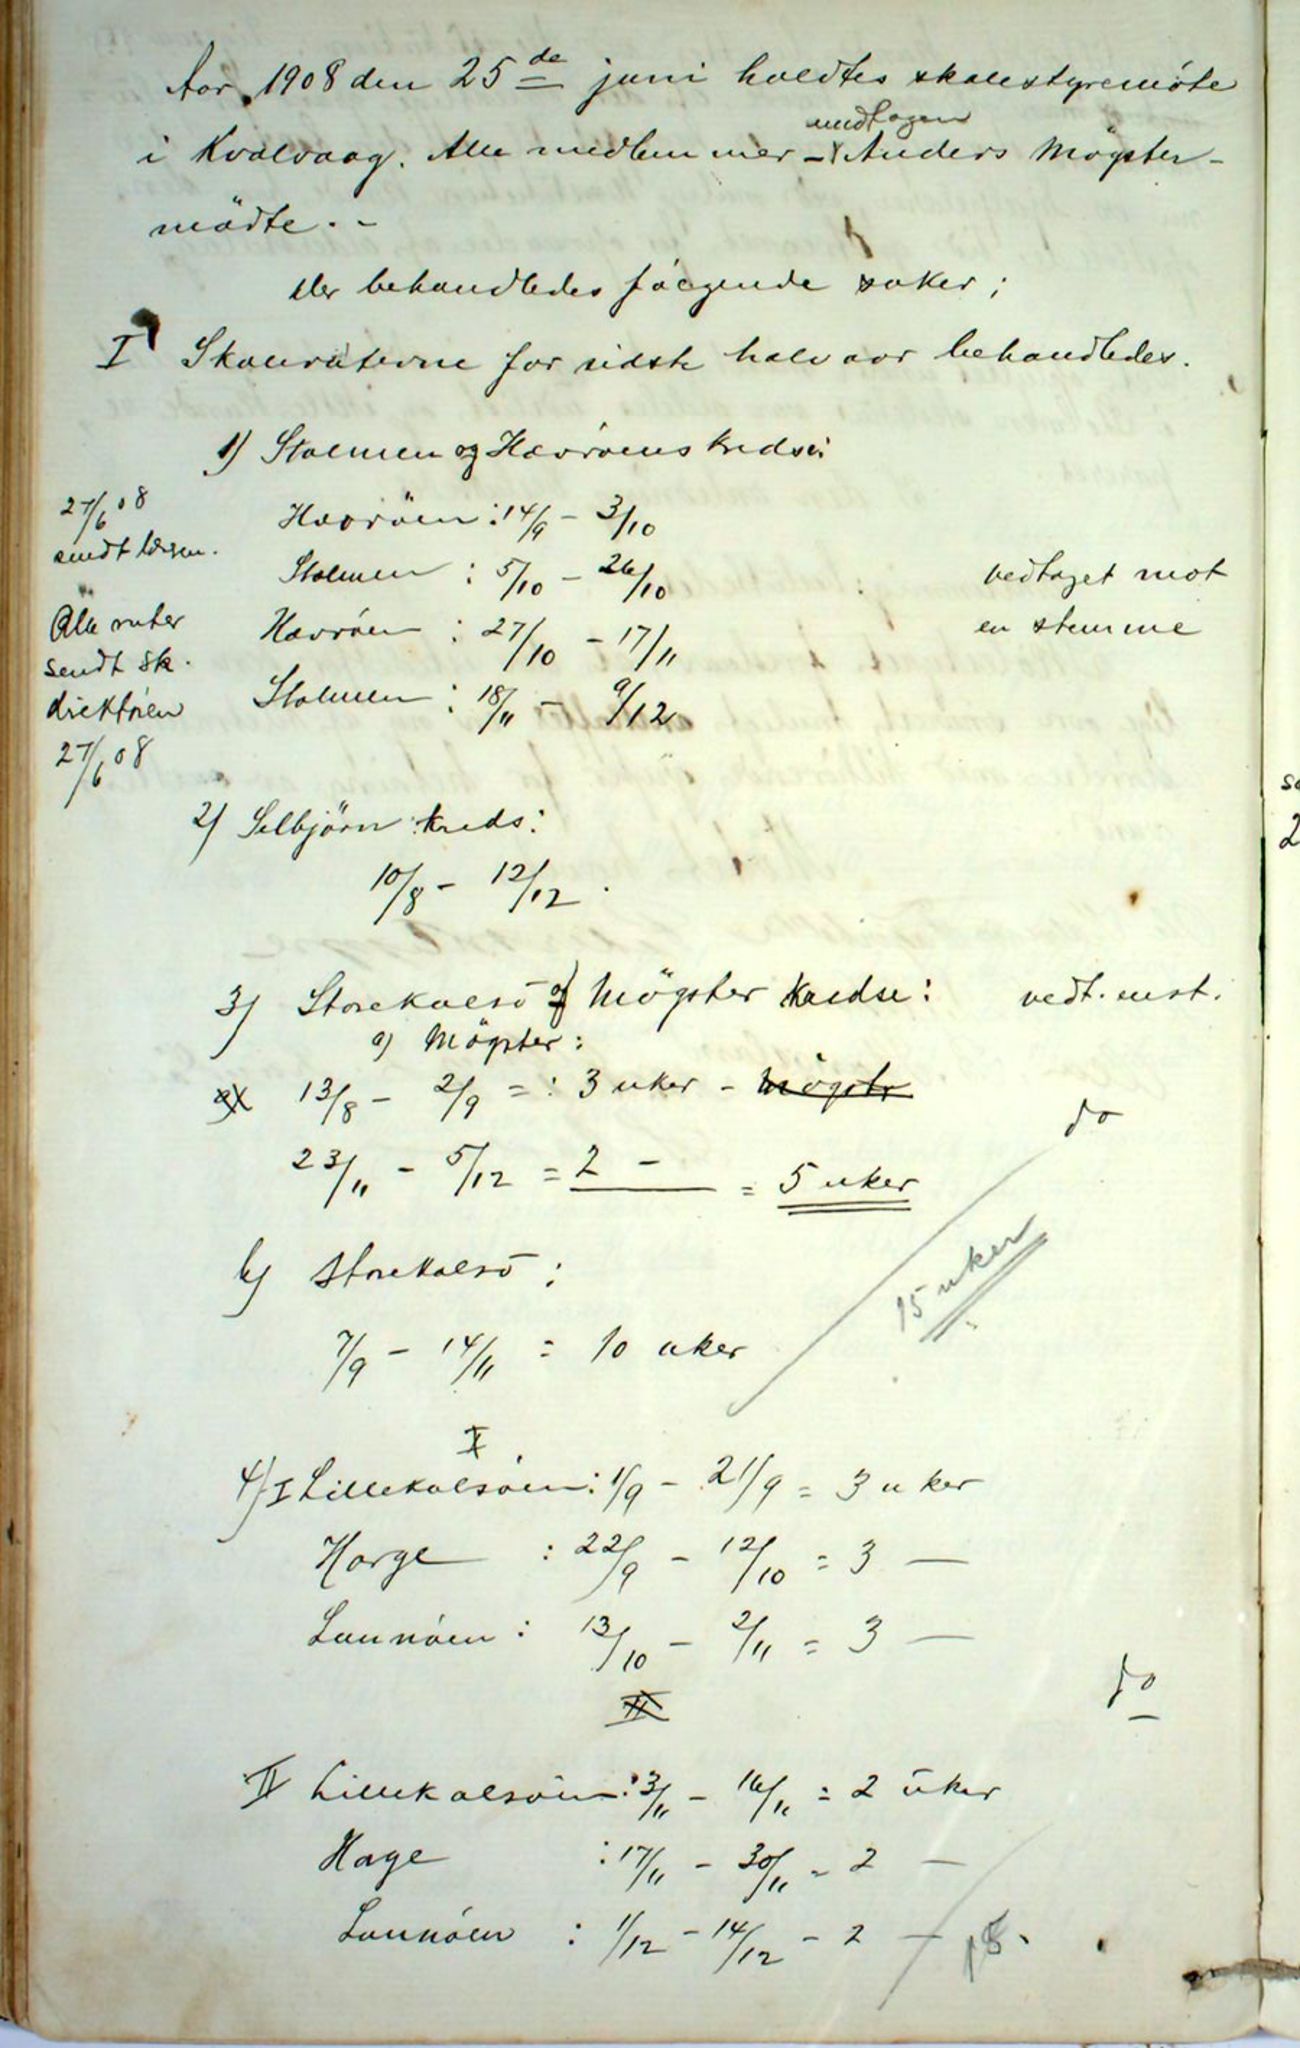 Aar 1908 den 25de juni holdtes skolestyremöte
i Kvalvaag. Alle medlemmer - undtagen Anders Mögster -
mödte. -
Der behandledes fölgende saker;
I Skoleruterne for sidste halvaar behandledes.
1) Stolmen og Havröens kredse:
27/6 08
sendt læreren.
Havröen : 14/9 - 3/10
Stolmen : 5/10 - 26/10
vedtaget mot
en stemme
Alle ruter
sendt sk.
direktören
27/6 08
Havröen : 27/10 - 17/11
Stolmen : 18/11 - 9/12
2) Selbjörn kreds:
10/8 - 12/12.
3) Storekalsö og Mögster kredse: vedt. enst.
a) Mögster:
a) 13/8 - 2/9 = : 3 uker - Mögster
do
23/11 - 5/12 = 2 - = 5 uker
15 uker
b) Storekalsö :
7/9 - 14/11 = 10 uker
I
4) I Lillekalsöen : 1/9 - 21/9 = 3 uker
Horge : 22/9 - 12/10 = 3 —
Lunnöen : 13/10 - 2/11 = 3 —
II
do
II Lillekalsöen : 3/11 - 16/11 = 2 uker
Hage : 17/11 - 30/11 - 2 —
Lunnöen : 1/12 - 14/12 - 2 — 15.